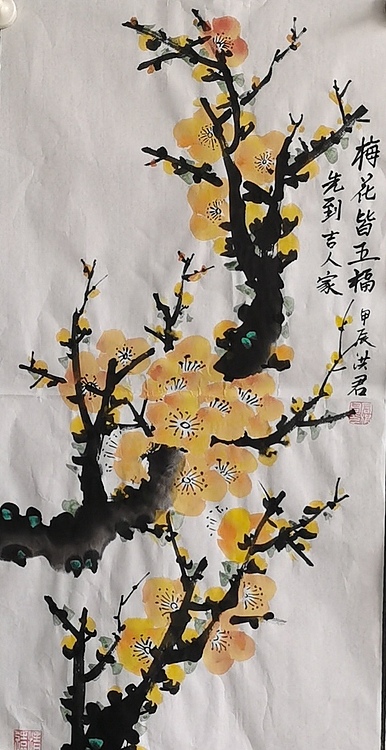 梅花皆五福
先到吉人家
甲辰洪君